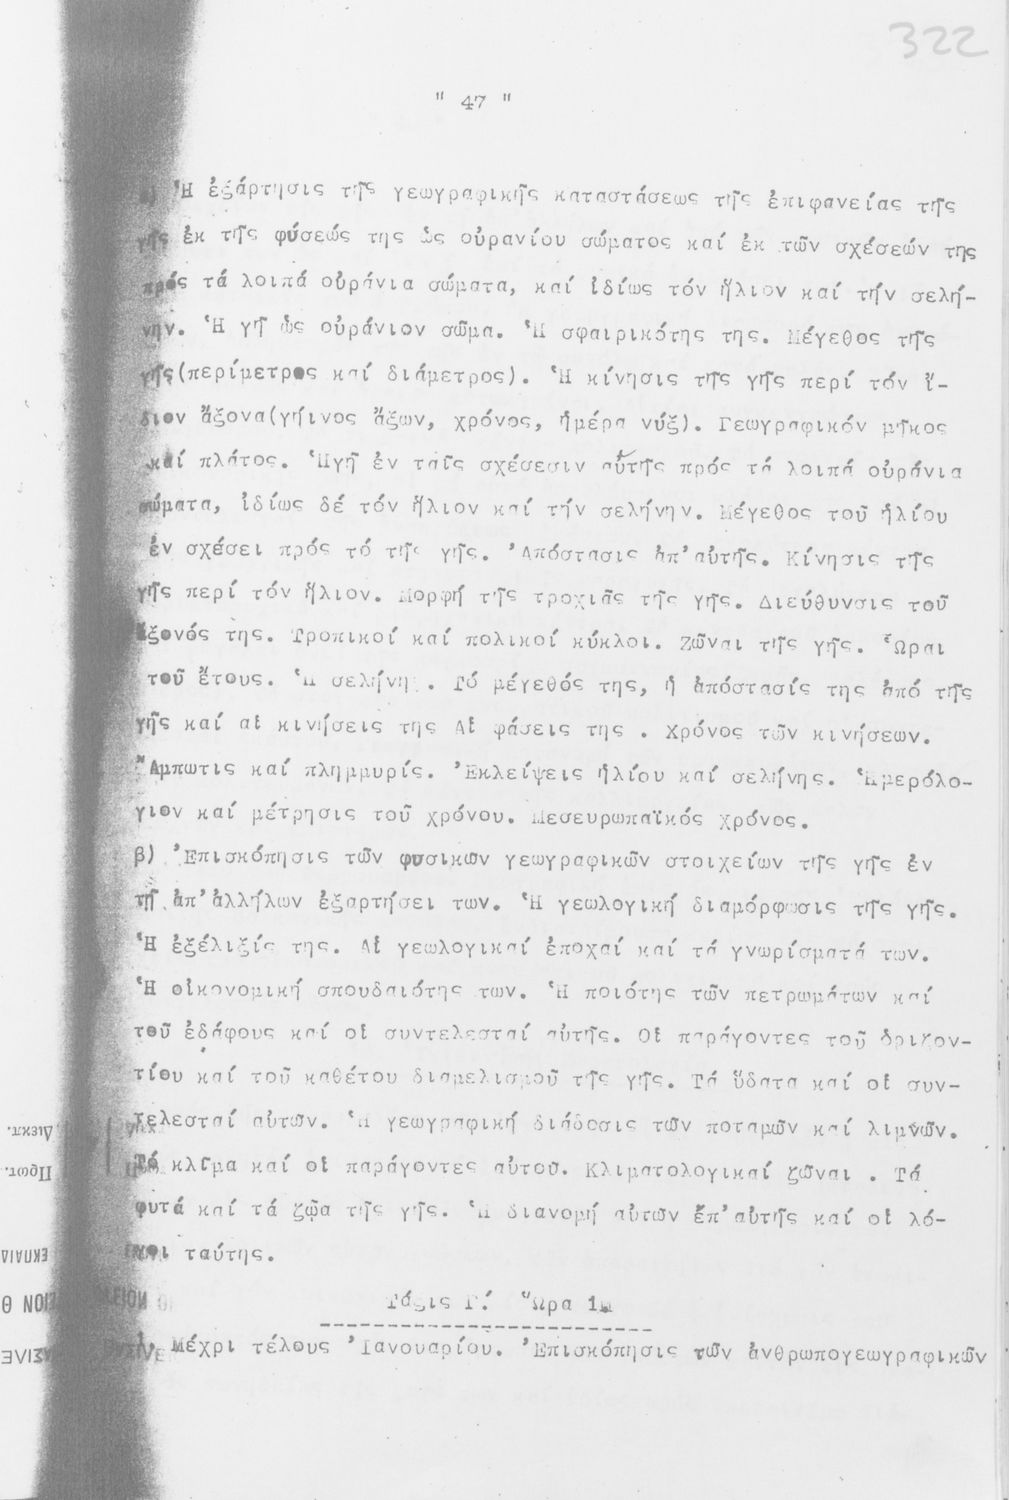 322
" 47 "
α) Ἡ ἐξάρτησις τῆς γεωγραφικῆς καταστάσεως τῆς ἐπιφανείας τῆς
γῆς ἐκ τῆς φύσεώς της ὡς οὐρανίου σώματος καί ἐκ τῶν σχέσεών της
πρός τά λοιπά οὐράνια σώματα, καί ἰδίως τόν ἥλιον καί τήν σελή-
νην. Ἡ γῆ ὡς οὐράνιον σῶμα. Ἡ σφαιρικότης της. Μέγεθος τῆς
γῆς(περίμετρος καί διάμετρος). Ἡ κίνησις τῆς γῆς περί τόν ἴ-
διον ἄξονα(γήινος ἄξων, χρόνος, ἡμέρα νύξ). Γεωγραφικόν μῆκος
καί πλάτος. Ἡγῆ ἐν ταῖς σχέσεσιν αὐτῆς πρός τά λοιπά οὐράνια
σώματα, ἰδίως δέ τόν ἥλιον καί τήν σελήνην. Μέγεθος τοῦ ἡλίου
ἐν σχέσει πρός τό τῆς γῆς. Ἀπόστασις ἀπ' αὐτῆς. Κίνησις τῆς
γῆς περί τόν ἥλιον. Μορφή τῆς τροχιᾶς τῆς γῆς. Διεύθυνσις τοῦ
ἄξονός της. Τροπικοί καί πολικοί κύκλοι. Ζῶναι τῆς γῆς. Ὧραι
τοῦ ἔτους. Ἡ σελήνη . Τό μέγεθός της, ἡ ἀπόστασίς της ἀπό τῆς
γῆς καί αἱ κινήσεις της Αἱ φάσεις της . Χρόνος τῶν κινήσεων.
Ἄμπωτις καί πλημμυρίς. Ἐκλείψεις ἡλίου καί σελήνης. Ἡμερόλο-
γιον καί μέτρησις τοῦ χρόνου. Μεσευρωπαϊκός χρόνος.
β) Ἐπισκόπησις τῶν φυσικῶν γεωγραφικῶν στοιχείων τῆς γῆς ἐν
τῇ ἀπ' ἀλλήλων ἐξαρτήσει των. Ἡ γεωλογική διαμόρφωσις τῆς γῆς.
Ἡ ἐξέλιξίς της. Αἱ γεωλογικαί ἐποχαί καί τά γνωρίσματά των.
Ἡ οἰκονομική σπουδαιότης των. Ἡ ποιότης τῶν πετρωμάτων καί
τοῦ ἐδάφους καί οἱ συντελεσταί αὐτῆς. Οἱ παράγοντες τοῦ ὁριζον-
τίου καί τοῦ καθέτου διαμελισμοῦ τῆς γῆς. Τά ὕδατα καί οἱ συν-
τελεσταί αὐτῶν. Ἡ γεωγραφική διάδοσις τῶν ποταμῶν καί λιμνῶν.
Τό κλῖμα καί οἱ παράγοντες αὐτοῦ. Κλιματολογικαί ζῶναι . Τά
φυτά καί τά ζῷα τῆς γῆς. Ἡ διανομή αὐτῶν ἐπ' αὐτῆς καί οἱ λό-
γοι ταύτης.
Τάξις Γ.́ Ὥρα 1Μ
Μέχρι τέλους Ἰανουαρίου. Ἐπισκόπησις τῶν ἀνθρωπογεωγραφικῶν